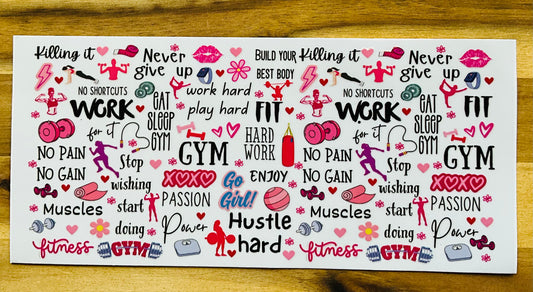 Killing it
Never give up
BUILD YOUR BEST BODY
Killing it
Never give up
NO SHORTCUTS
WORK
for it
EAT
SLEEP
GYM
work hard
play hard
FIT
NO SHORTCUTS
WORK
for it
EAT
SLEEP
GYM
FIT
NO PAIN
NO GAIN
Stop
wishing
start
doing
GYM
HARD
WORK
ENJOY
NO PAIN
NO GAIN
Stop
wishing
start
doing
GYM
XOXO
PASSION
Go
Girl!
XOXO
PASSION
Muscles
Power
Hustle
hard
Muscles
Power
fitness
GYM
fitness
GYM